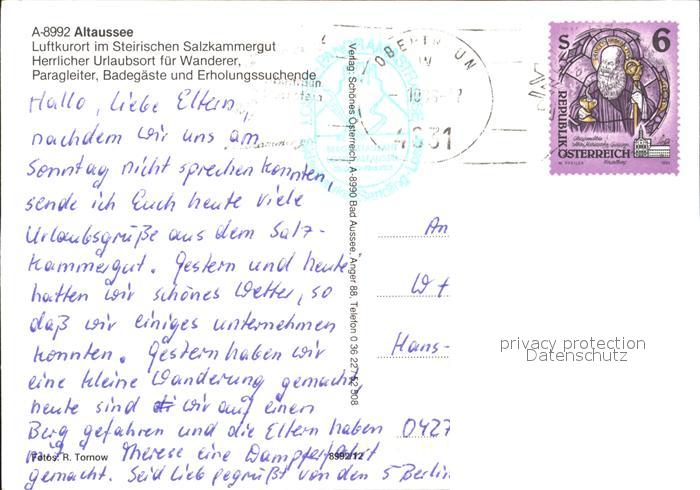 A-8992 Altaussee
Luftkurort im Steirischen Salzkammergut
Herrlicher Urlaubsort für Wanderer,
Paragleiter, Badegäste und Erholungssuchende
Hallo, liebe Eltern,
nachdem wir uns am
Sonntag nicht sprechen konnten,
sende ich Euch heute viele
Urlaubsgrüße aus dem Salz-
kammergut. Gestern und heute
hatten wir schönes Wetter, so
daß wir einiges unternehmen
konnten. Gestern haben wir
eine kleine Wanderung gemacht,
heute sind wir auf einen
Berg gefahren und die Eltern haben
mit Therese eine Dampferfahrt
gemacht. Seid lieb gegrüßt von den 5 Berlin
Fotos: R. Tornow
8992/12
Verlag: Schönes Österreich, A-8990 Bad Aussee, Anger 88, Telefon 0 36 22/52 508
4831
S 6
REPUBLIK
ÖSTERREICH
An
Hans-
0427
privacy protection
Datenschutz